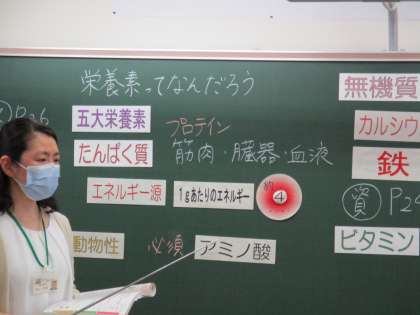 栄養素ってなんだろう
P.26
五大栄養素
たんぱく質
プロテイン
筋肉・臓器・血液
エネルギー源
1gあたりのエネルギー
約
4
動物性
必須
アミノ酸
無機質
カルシウ
鉄
資 P24
ビタミン